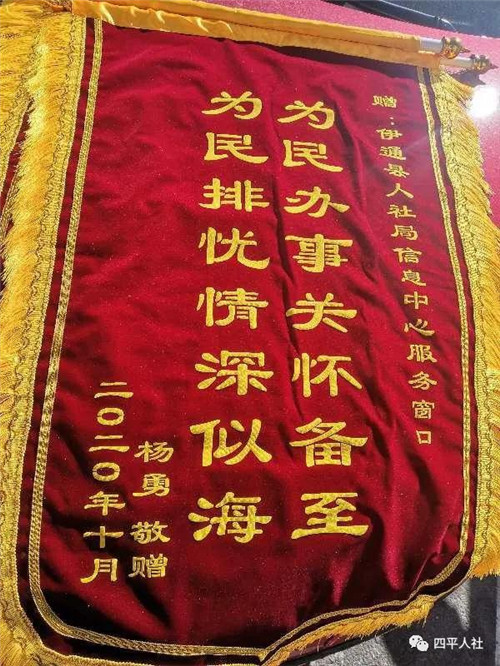 赠：伊通县人社局信息中心服务窗口
为民办事关怀备至
为民排忧情深似海
杨勇 敬赠
二〇二〇年十月
四平人社